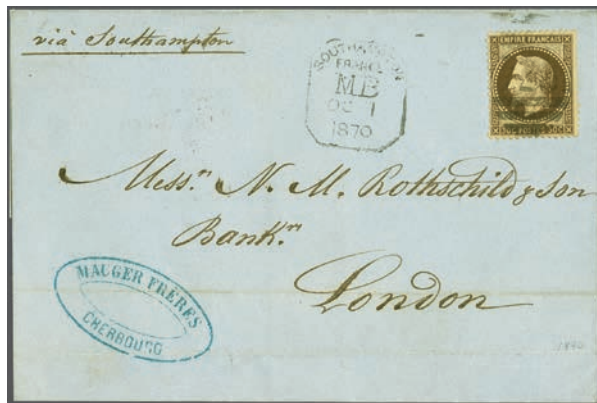 viâ Southampton
SOUTHAMPTON
FRANCE
MB
OC 1
1870
EMPIRE FRANCAIS
30C POSTES 30C
Messrs. N. M. Rothschild & Son
Bankrs.
London
MAUGER FRÈRES
CHERBOURG